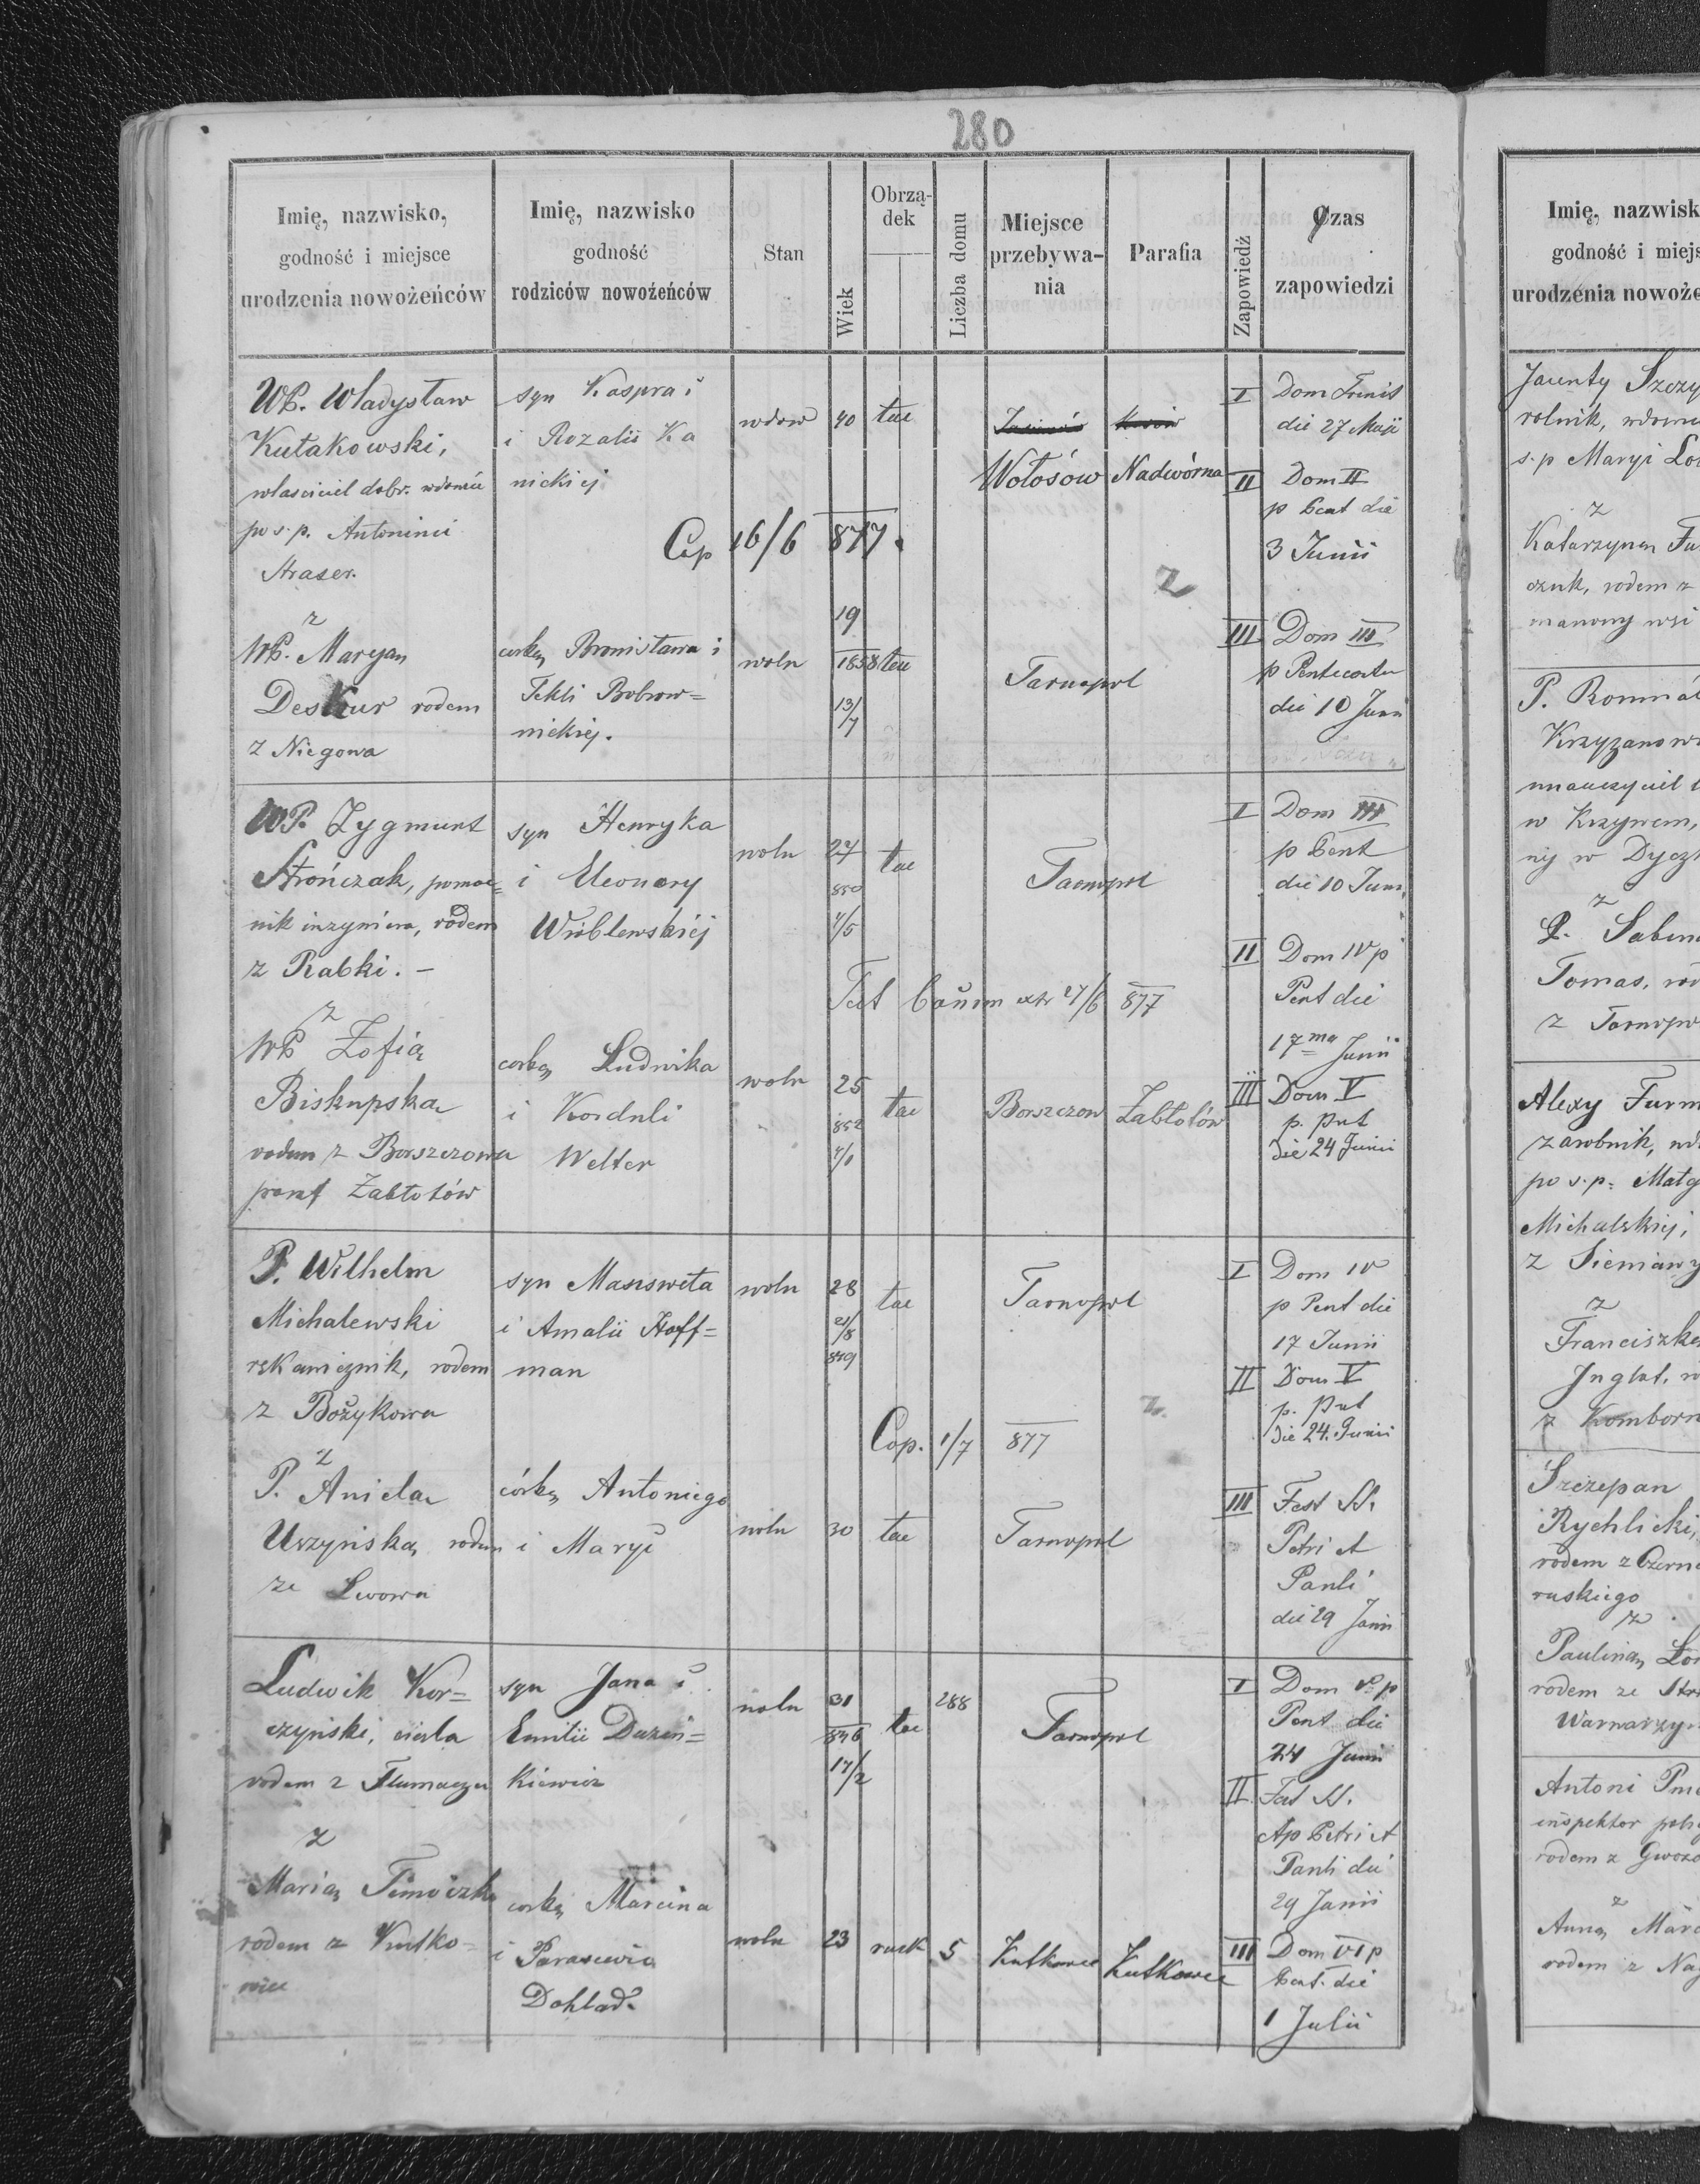 280
Imię, nazwisko,
godność i miejsce
urodzenia nowożeńców
Imię, nazwisko
godność
rodziców nowożeńców
Stan
Wiek
Obrzą-
dek
Liczba domu
Miejsce
przebywa-
nia
Parafia
Zapowiedż
Czas
zapowiedzi
WP. Władysław
Kułakowski,
własciciel dobr. wdowiec
po s. p. Antoninie
syn Kaspra i
i Rozalii Ka
nickiej
wdow
40
łac
Wołosów
Nadwórna
I
Dom Trinit
die 27 Maji
II
Dom II
p Pent die
3 Junii
Cop 16/6 877.
z
z
WP. Maryan
Deskur rodem
z Niegowa
corką Bronisława i
Tekli Bobrow=
nickiej.
woln
19
1858
13/7
łac
Tarnopol
III
Dom III
p Pentecosten
die 10 Juni
WP. Zygmunt
Strończak, pomoc=
nik inzyniera, rodem
z Rabki. -
syn Henryka
i Eleonory
Wróblewskiéj
woln
27
850
1/5
łac
Tarnopol
I
Dom III
p Pent
die 10 Juni
II
Dom IV p
Pent die
17ma Junii
877
z
WP Zofią
Biskupska
rodem z Borszczowa
paraf Zabłotów
corką Ludwika
i Korduli
Welter
woln
25
852
łac
Borszczow
Zabłotów
III
Dom V
p. Pnt
die 24 Junii
P. Wilhelm
Michalewski
rękawicznik, rodem
z Bożykowa
syn Mansweta
i Amalii Hoff=
man
woln
28
21/8
849
łac
Tarnopol
I
Dom IV
p Pent die
17 Junii
II
Dom V
p. Pnt
die 24. Junii
Cop. 1/7 877
z
z
P. Anielą
Uszyńską rodem
ze Lwowa
córką Antoniego
i Maryi
woln
30
łac
Tarnopol
III
Fest SS.
Petri et
Pauli
die 29 Junii
Ludwik Kor=
czyński, cieśla
rodem z Tłumacza
syn Jana i
Emilii Dazin=
kiewicz
woln
31
846
17/2
łac
288
Tarnopol
I
Dom V p
Pent die
24 Junii
II
Fest SS.
Ap Petri et
Pauli die
29 Junii
z
Marią Timoczko
rodem z Kutko-
wiec
corką Marcina
i Parascewia
Dokład.
woln
23
rusk
5
Kutkowce
Kutkowce
III
Dom VI p
Pent. die
1 Julii
Imię, nazwisk
godność i miejs
urodzenia nowoże
rolnik, wdowiec
s. p Maryi
z
Katarzyną
rodem z
P.
Krzyzanows
w
z
P. Sabin
Tomas, rod
z Tarnopo
Alexy Furm
zarobnik, wd
po s. p. Małg
Michalskiej,
z
z
Franciszką
z Komborn
Szczepan
Rychlicki,
rodem z Czern
ruskiego
z
Pauliną
rodem ze
Antoni
inspektor
rodem z
z
Anną Marc
rodem z